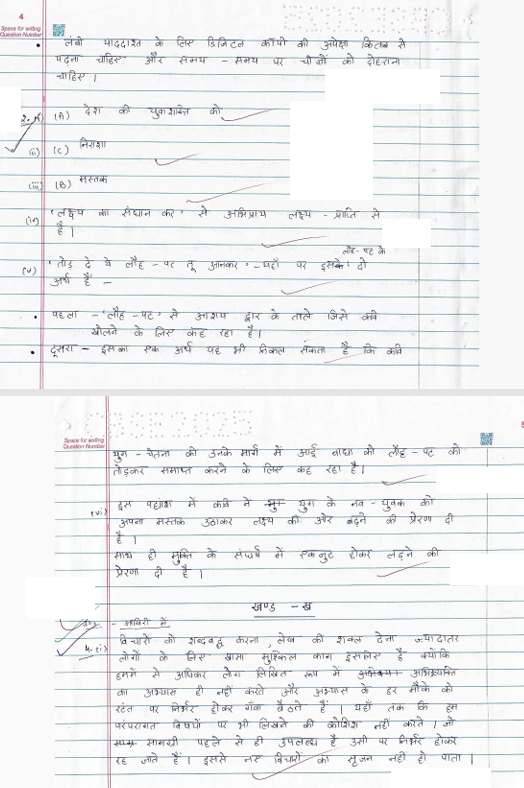 4
Space for writing
Question Number
• लंबी याददाश्त के लिए डिजिटल कॉपी की अपेक्षा किताब से
पढ़ना चाहिए और समय - समय पर चीजों को दोहराना
चाहिए।
2. (i) (A) देश की युवाशक्ति को
(ii) (C) निराशा
(iii) (B) मस्तक
(iv) 'लक्ष्य का संधान कर' से अभिप्राय लक्ष्य - प्राप्ति से
है।
लौह-पट के
(v) 'तोड़ दे ये लौह - पट तू आनकर' - यहाँ पर इसके दो
अर्थ हैं -
• पहला - 'लौह - पट' से आशय द्वार के ताले जिसे कवि
खोलने के लिए कह रहा है।
• दूसरा - इसका एक अर्थ यह भी निकल सकता है कि कवि
Space for writing
Question Number
युग - चेतना को उनके मार्ग में आई बाधा को लौह - पट को
तोड़कर समाप्त करने के लिए कह रहा है।
(vi) इस पद्यांश में कवि ने युग के नव - युवक को
अपना मस्तक उठाकर लक्ष्य की ओर बढ़ने की प्रेरणा दी
है।
साथ ही मुक्ति के संघर्ष में एकजुट होकर लड़ने की
प्रेरणा दी है।
खण्ड - ख
4. (i) विचारों को शब्दबद्ध करना, लेख की शक्ल देना ज्यादातर
लोगों के लिए खासा मुश्किल काम इसलिए है क्योंकि
हममें से अधिकतर लोग लिखित रूप में अभिव्यक्ति
का अभ्यास ही नहीं करते और अभ्यास के हर मौके को
रटंत पर निर्भर होकर गँवा बैठते हैं। यहाँ तक कि हम
परंपरागत विषयों पर भी लिखने की कोशिश नहीं करते। जो
सामग्री पहले से ही उपलब्ध है उसी पर निर्भर होकर
रह जाते हैं। इससे नए विचारों का सृजन नहीं हो पाता।